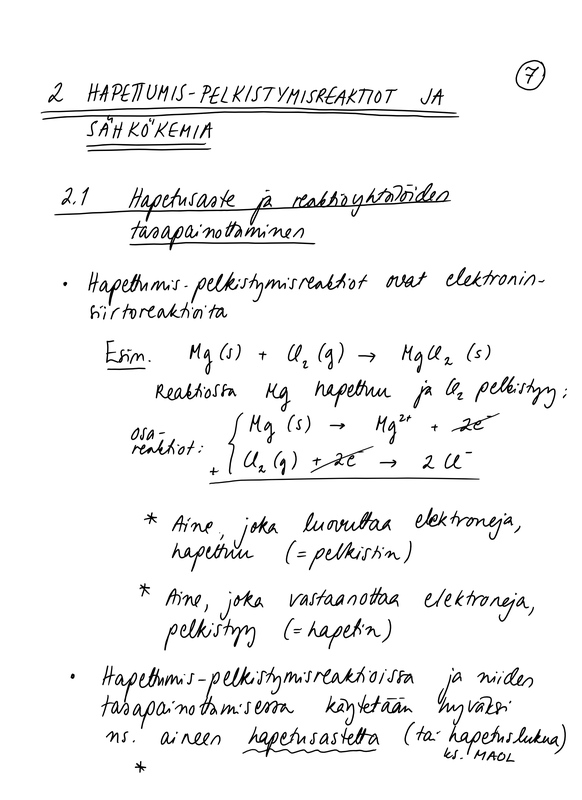 7
2 HAPETTUMIS-PELKISTYMISREAKTIOT JA
SÄHKÖKEMIA
2.1 Hapetusaste ja reaktioyhtälöiden
tasapainottaminen
• Hapettumis-pelkistymisreaktiot ovat elektronin-
siirtoreaktioita
Esim. Mg (s) + Cl₂ (g) → MgCl₂ (s)
Reaktiossa Mg hapettuu ja Cl₂ pelkistyy:
osa-
reaktiot:
Mg (s) → Mg²⁺ + 2e⁻
+ Cl₂ (g) + 2e⁻ → 2 Cl⁻
* Aine, joka luovuttaa elektroneja,
hapettuu (= pelkistin)
* Aine, joka vastaanottaa elektroneja,
pelkistyy (= hapetin)
• Hapettumis-pelkistymisreaktioissa ja niiden
tasapainottamisessa käytetään hyväksi
ns. aineen hapetusastetta (tai hapetuslukua)
ks. MAOL
*